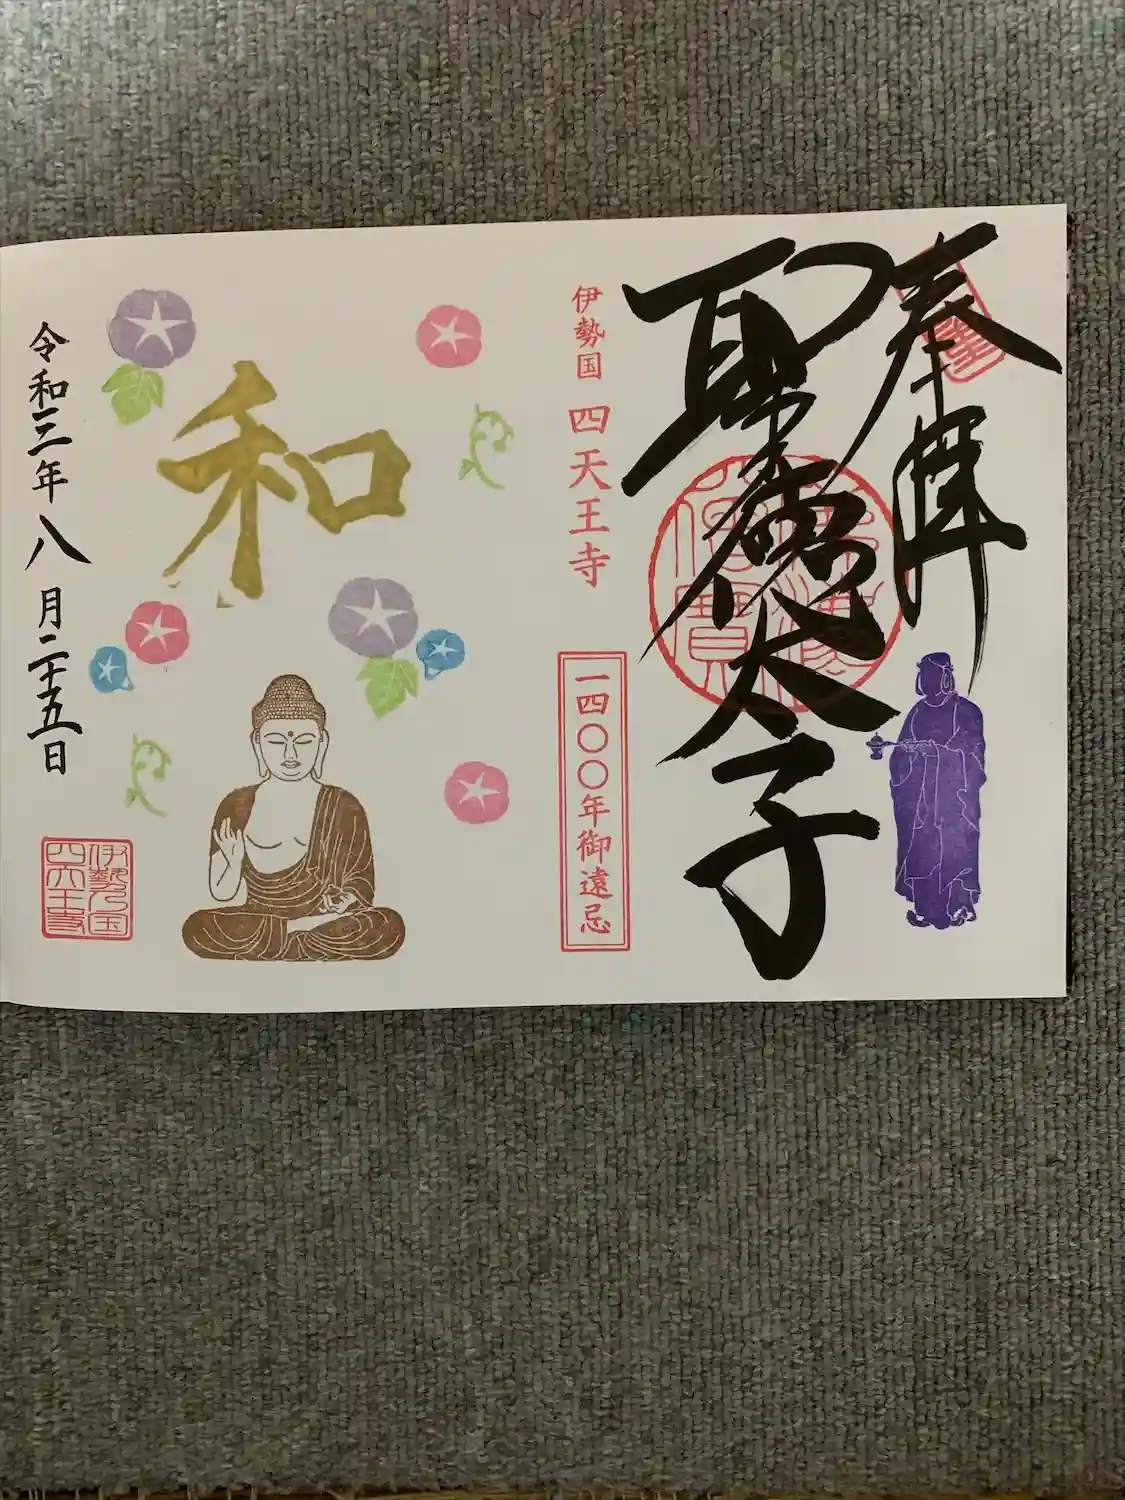 奉拝
聖徳太子
伊勢国 四天王寺
一四〇〇年御遠忌
和
令和三年八月二十五日
伊勢乃国
四天王寺